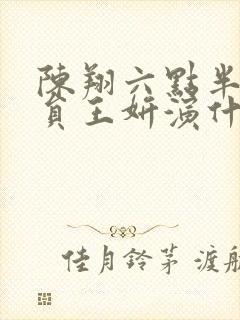 陳翔六點半
員王妍演什
佳月鈴茅 渡航